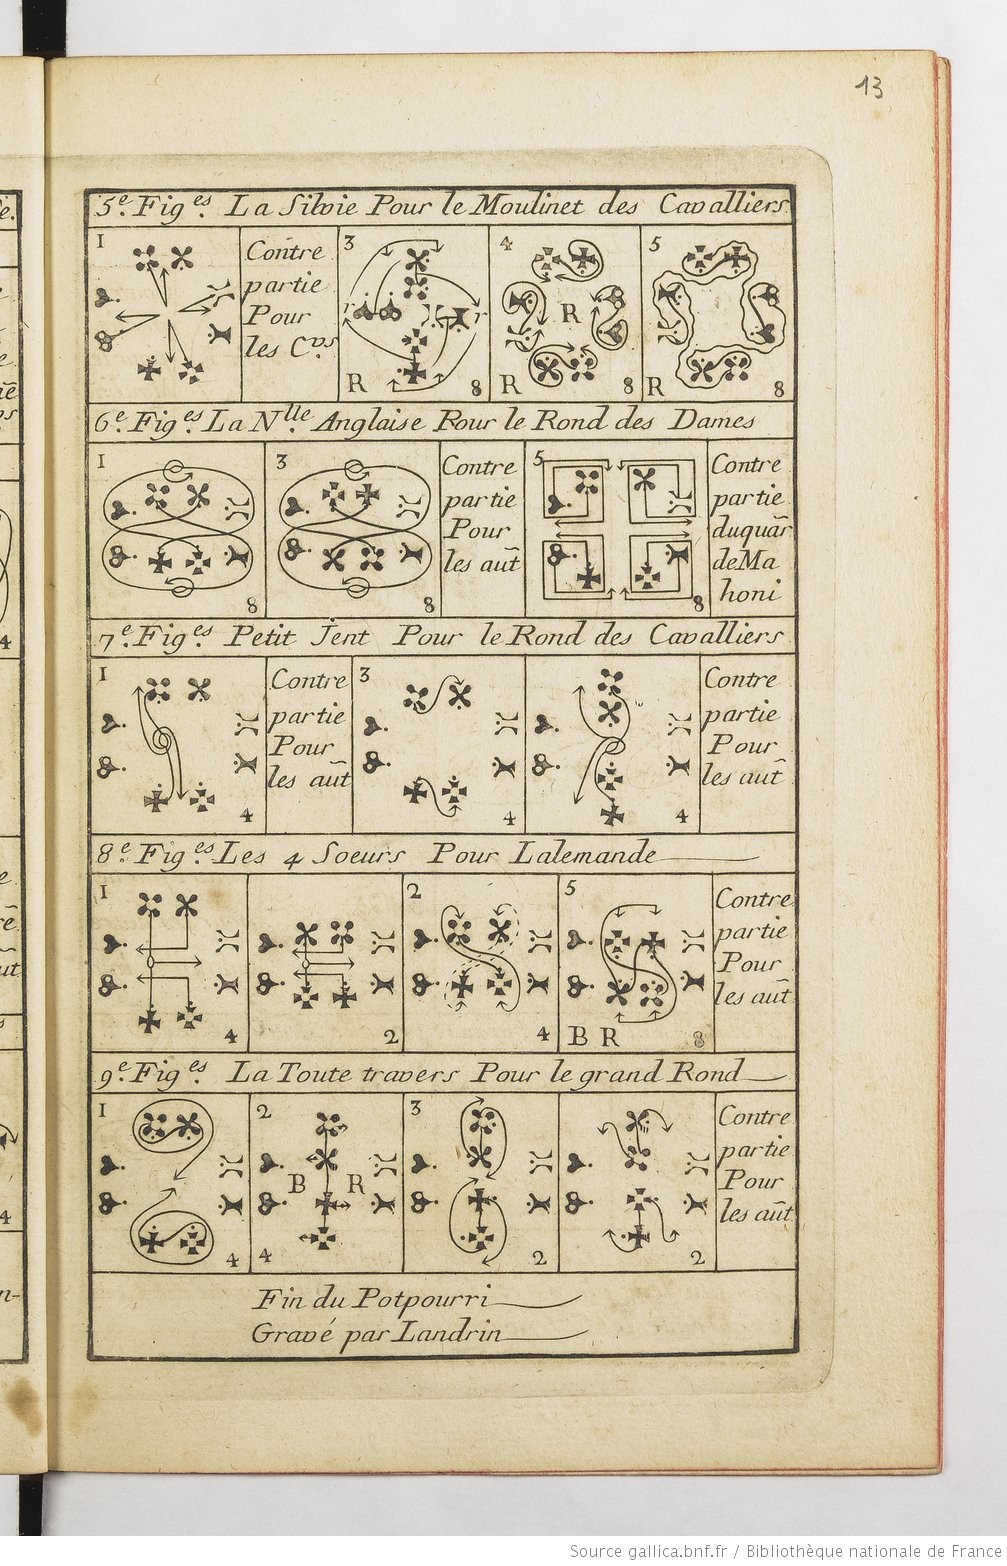 13
5.e Fig.es La Silvie Pour le Moulinet des Cavalliers
1
Contre
partie
Pour
les C.vrs
3
r
r
R
8
4
R
R
8
5
R
8
6.e Fig.es La N.lle Anglaise Pour le Rond des Dames
1
8
3
8
Contre
partie
Pour
les aut̃
5
8
Contre
partie
duquar̃
de Ma
honi
7.e Fig.es Petit Jent Pour le Rond des Cavalliers
1
4
Contre
partie
Pour
les aut̃
3
4
4
Contre
partie
Pour
les aut̃
8.e Fig.es Les 4 Soeurs Pour Lalemande
1
4
2
2
4
5
B R
8
Contre
partie
Pour
les aut̃
9.e Fig.es La Toute travers Pour le grand Rond
1
4
2
B R
4
3
2
2
Contre
partie
Pour
les aut̃
Fin du Potpourri
Gravé par Landrin
Source gallica.bnf.fr / Bibliothèque nationale de France